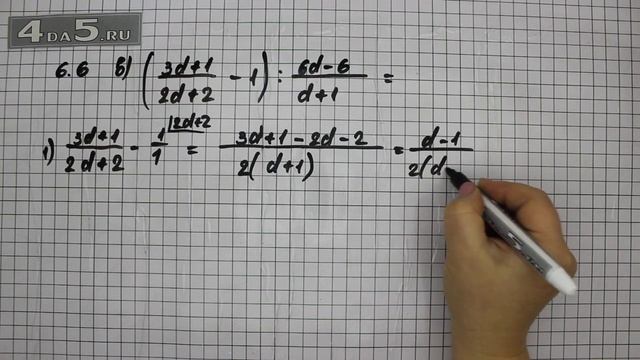 4DA5.RU
6.6 в) ( (3d+1)/(2d+2) - 1 ) : (6d-6)/(d+1) =
1) (3d+1)/(2d+2) - 1/1 |2d+2 = (3d+1-2d-2)/(2(d+1)) = (d-1)/(2(d